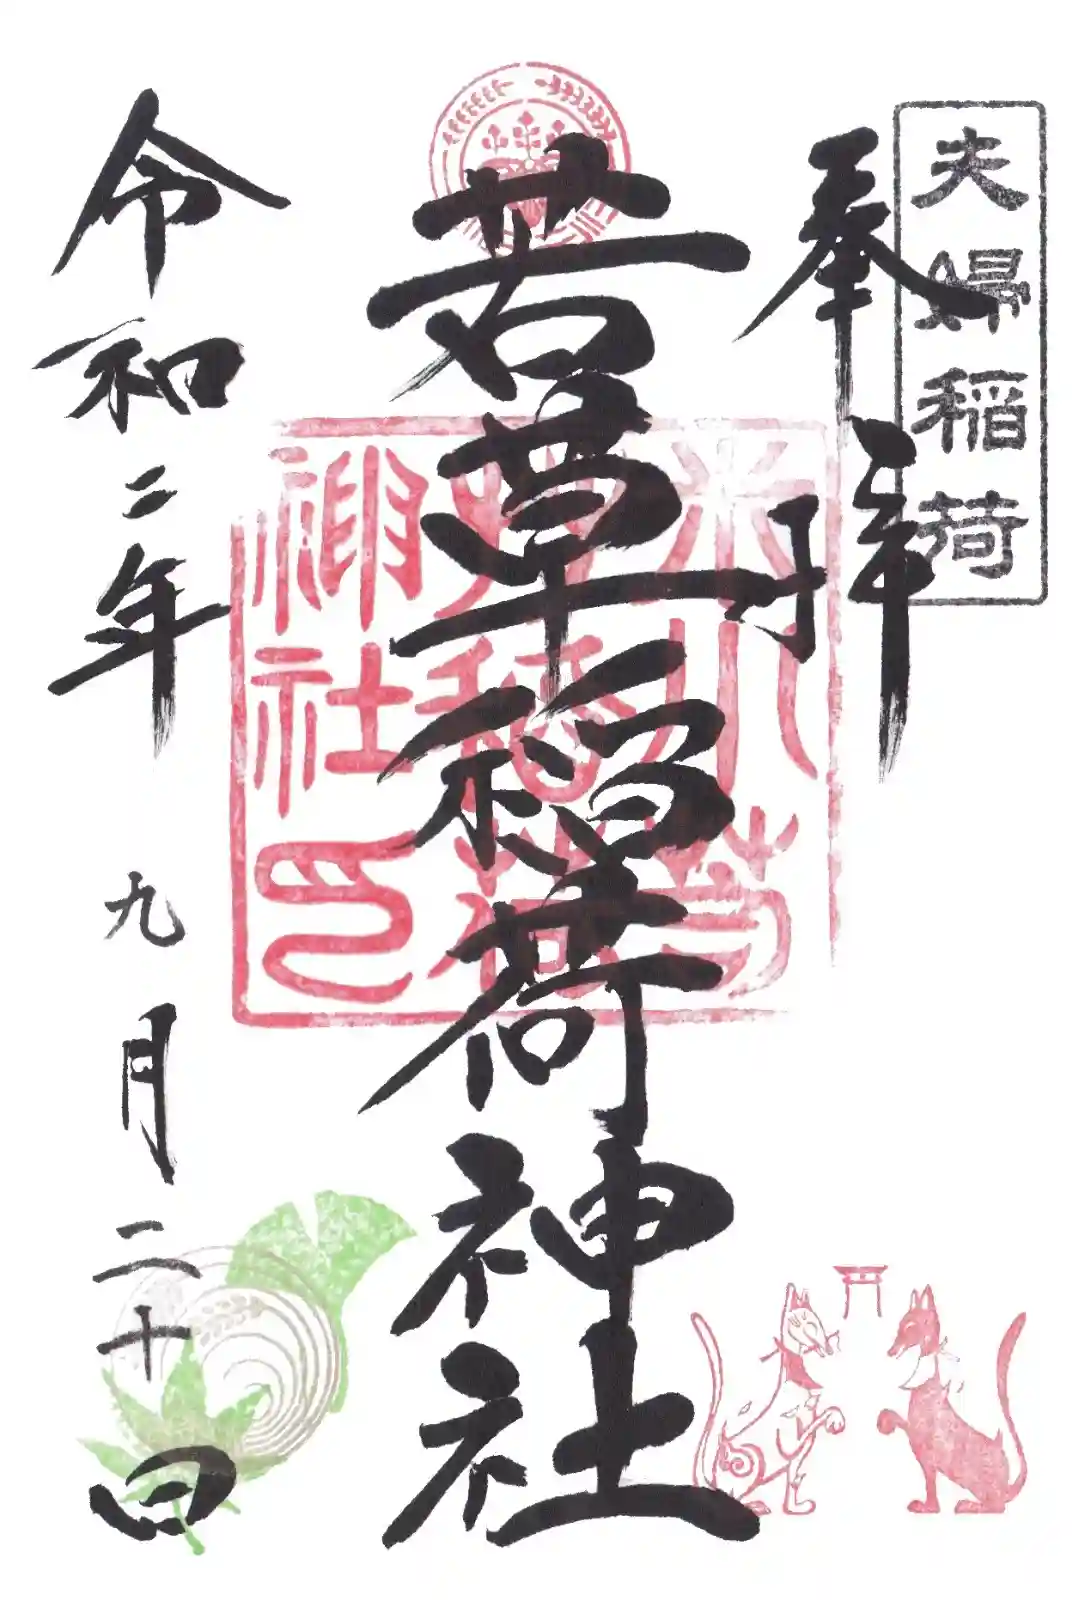 夫婦稲荷
奉拝
若草稲荷神社
令和二年九月二十日
若
草稲荷
神社印